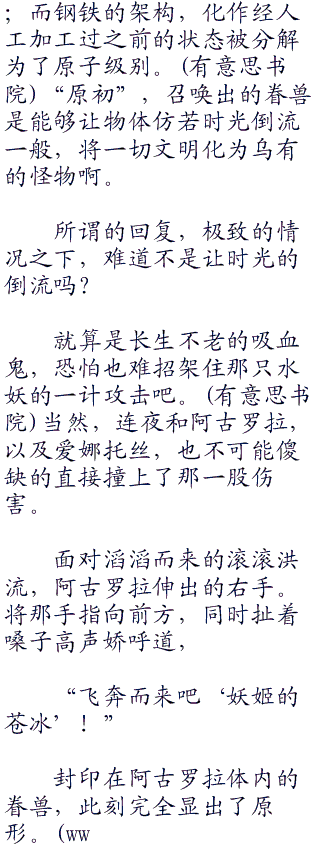 ；而钢铁的架构，化作经人
工加工过之前的状态被分解
为了原子级别。（有意思书
院）“原初”，召唤出的眷兽
是能够让物体仿若时光倒流
一般，将一切文明化为乌有
的怪物啊。
所谓的回复，极致的情
况之下，难道不是让时光的
倒流吗？
就算是长生不老的吸血
鬼，恐怕也难招架住那只水
妖的一计攻击吧。（有意思书
院）当然，连夜和阿古罗拉，
以及爱娜托丝，也不可能傻
缺的直接撞上了那一股伤
害。
面对滔滔而来的滚滚洪
流，阿古罗拉伸出的右手。
将那手指向前方，同时扯着
嗓子高声娇呼道，
“飞奔而来吧‘妖姬的
苍冰’！”
封印在阿古罗拉体内的
眷兽，此刻完全显出了原
形。（ww